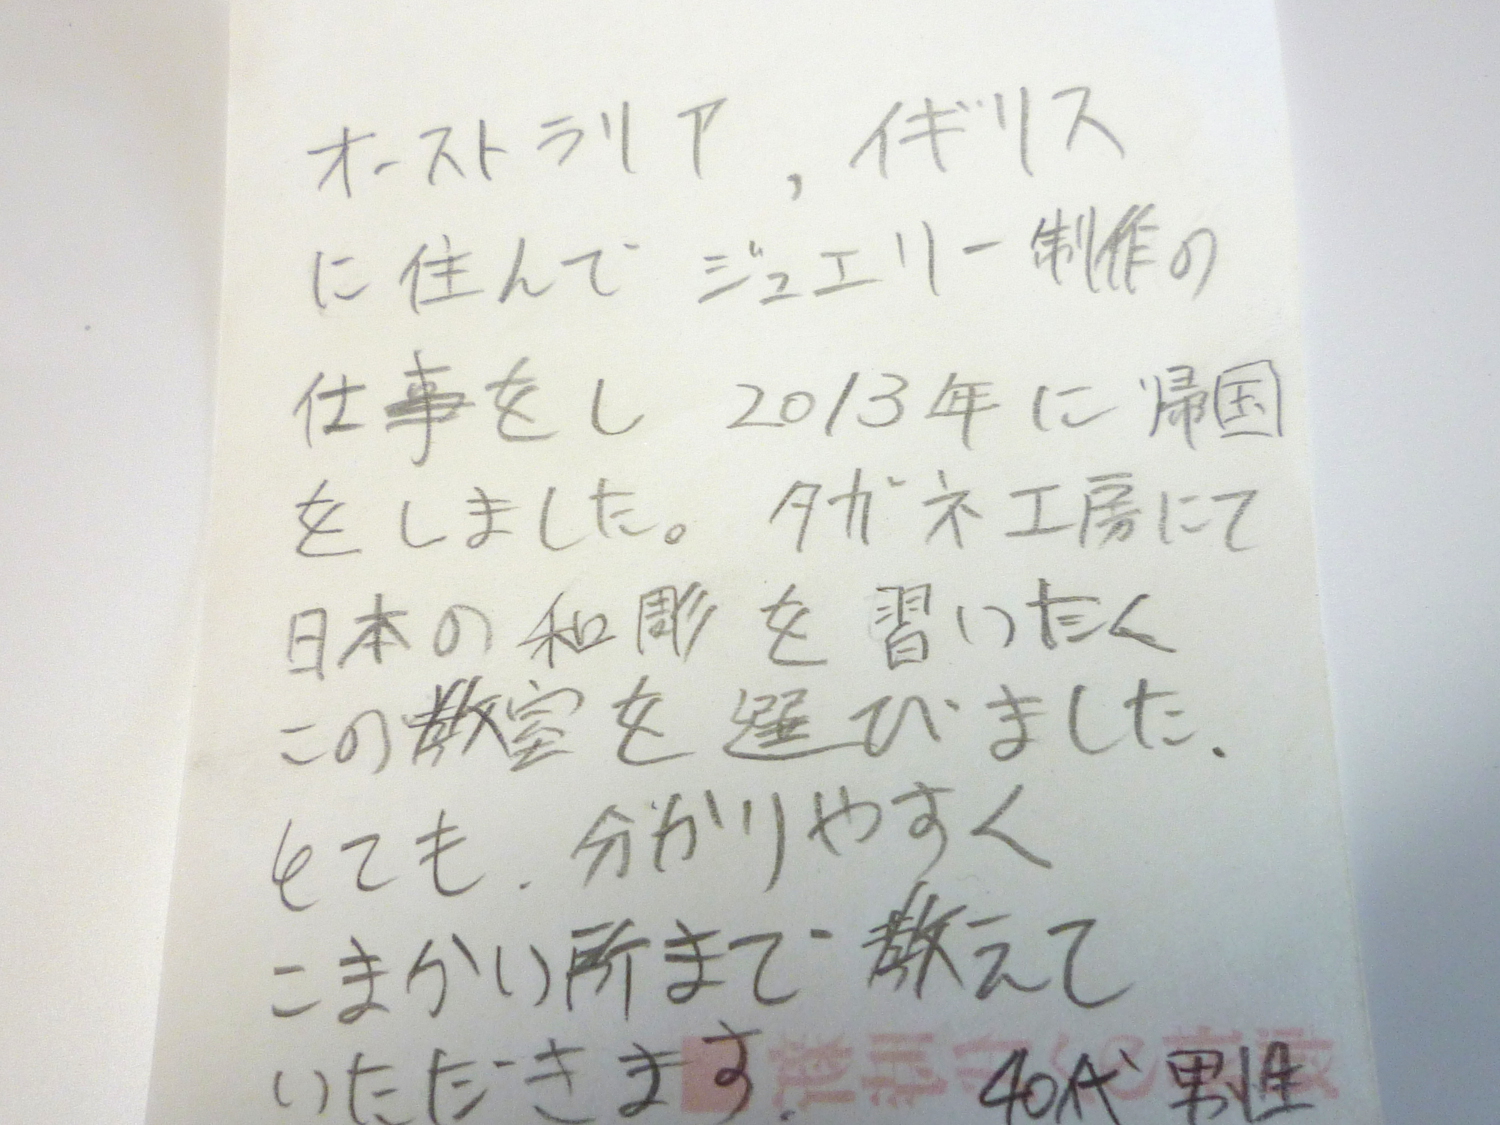 オーストラリア, イギリス
に住んで ジュエリー制作の
仕事をし 2013年に帰国
をしました。 タガネ工房にて
日本の和彫を習いたく
この教室を選びました.
とても. 分かりやすく
こまかい所まで教えて
いただきます. 40代 男性